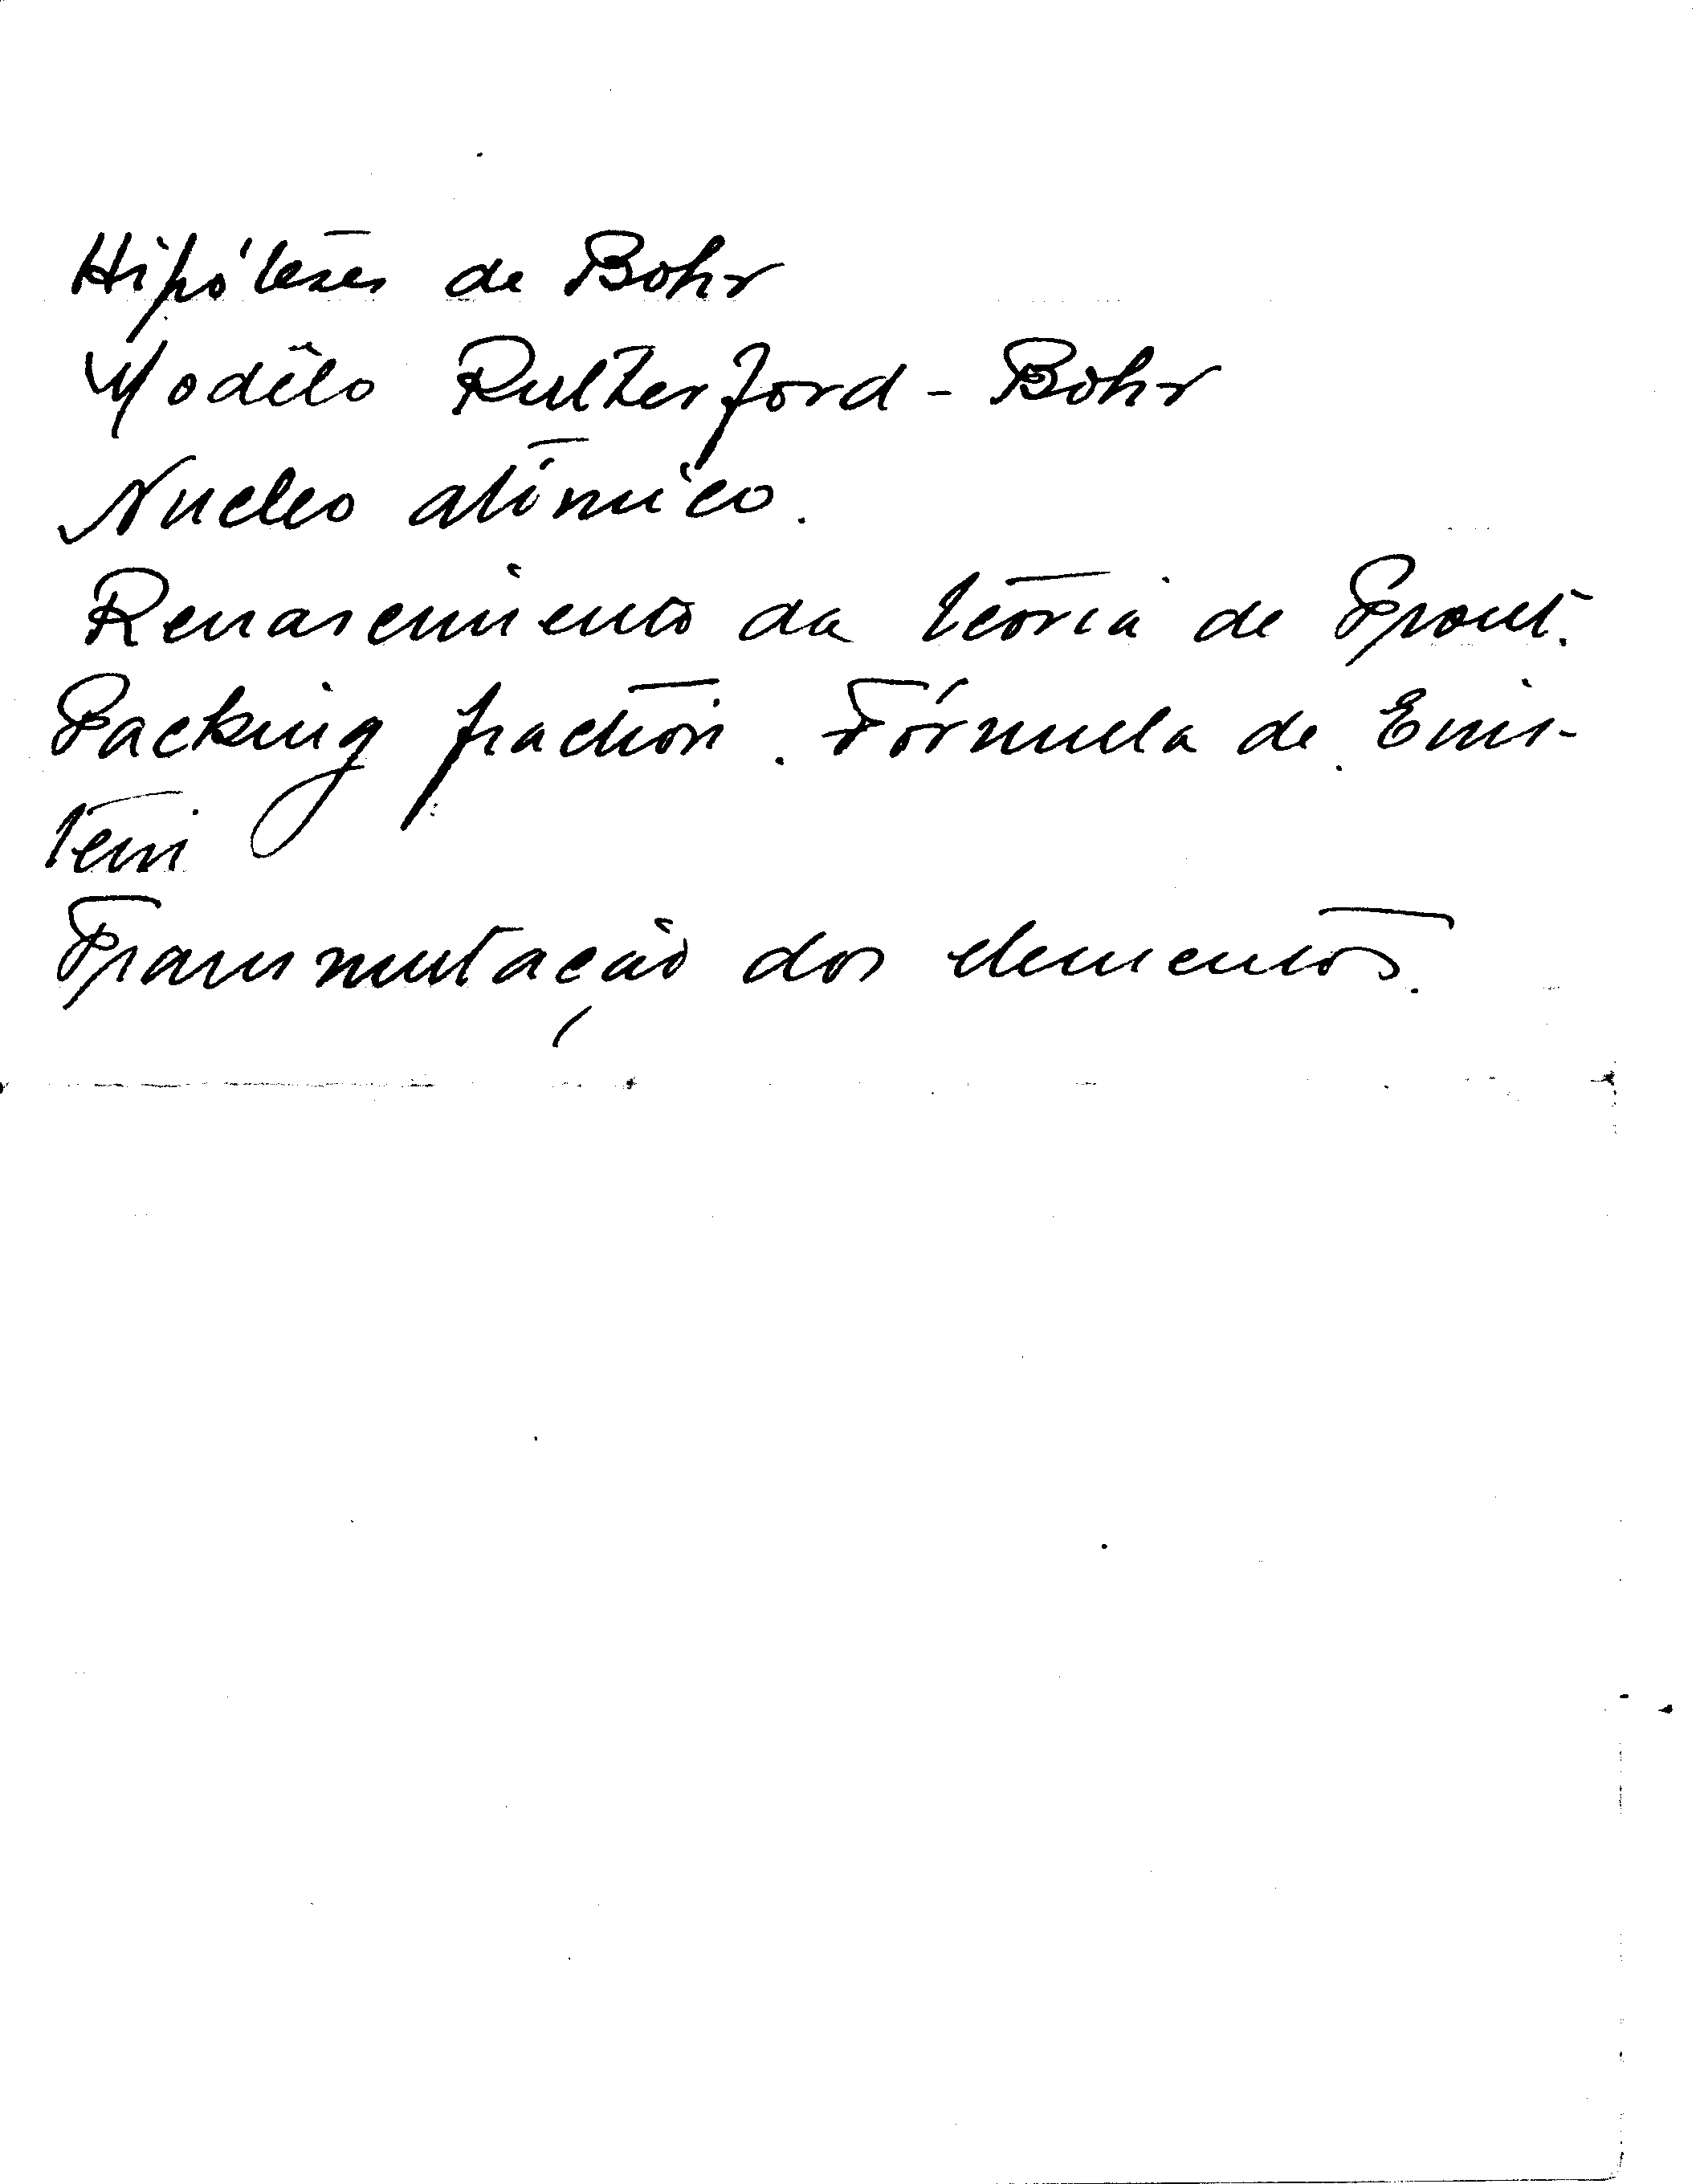 Hipóteses de Bohr
Modêlo Rutherford - Bohr
Nucleo atômico.
Renascimento da teoria de Prout.
Packing fraction. Fórmula de Eins-
tein
Transmutação dos elementos.